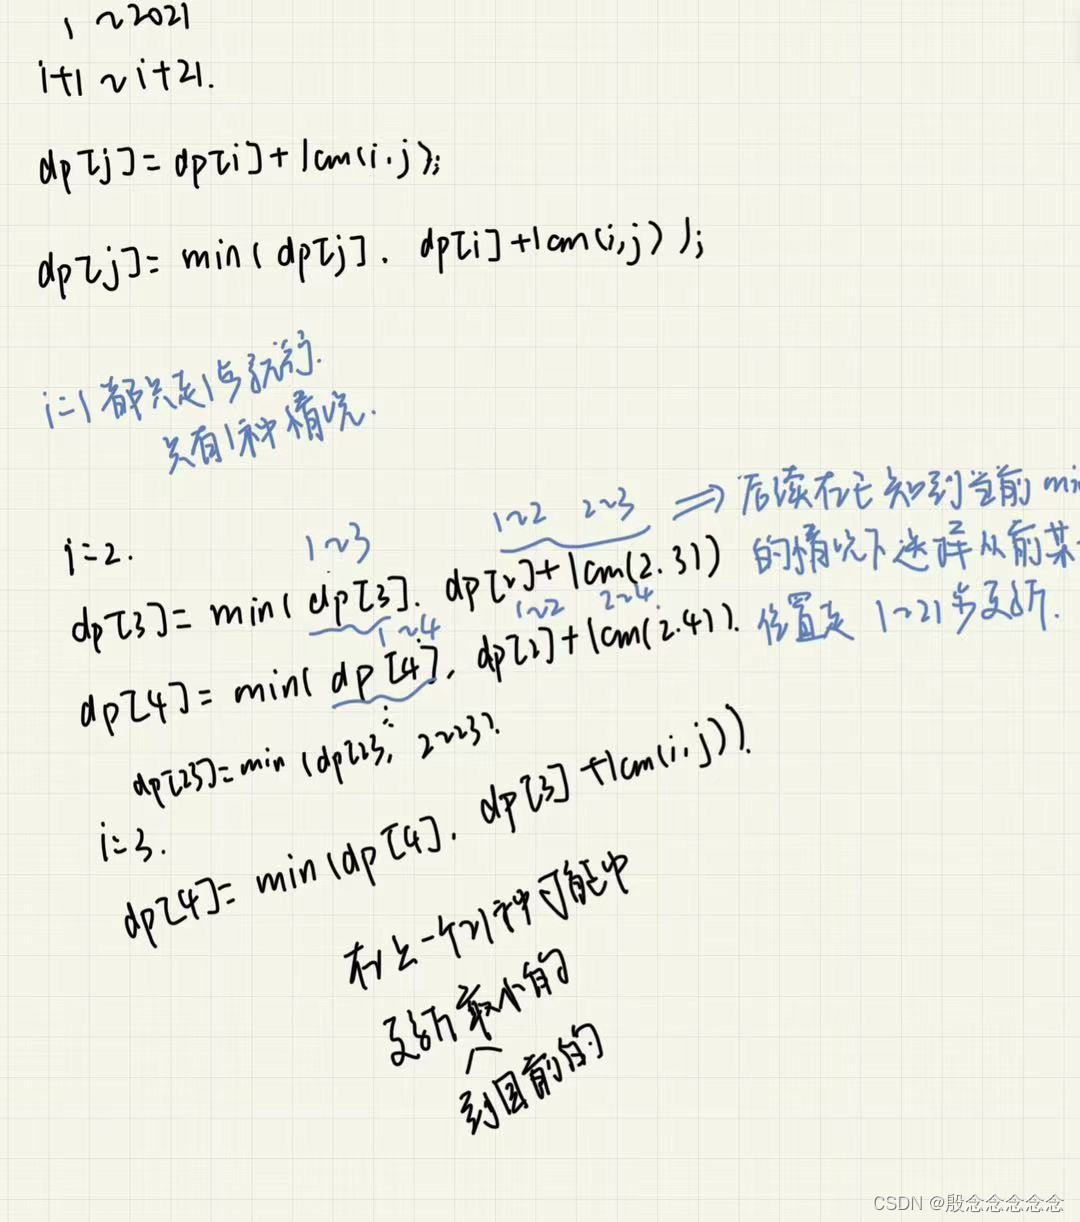 1 ~2021
i+1 ~ i+21.
dp[j] = dp[i] + lcm(i.j);
dp[j] = min( dp[j] . dp[i] + lcm(i,j) );
i=1 都只走1步
只有1种情况.
i=2.
1~3
1~2 2~3 ⇒ 后续在已知到当前 mi
dp[3] = min( dp[3]. dp[2] + lcm(2.3))
的情况下选择从前某
1~4
1~2 2~4
dp[4] = min( dp[4], dp[2] + lcm(2.4)).
位置走 1~21步到.
dp[23] = min (dp[23, 2~23).
i=3.
dp[4] = min(dp[4]. dp[3] + lcm(i.j)).
在上一个21种可能中
最小的
到目前的
CSDN @殷念念念念念